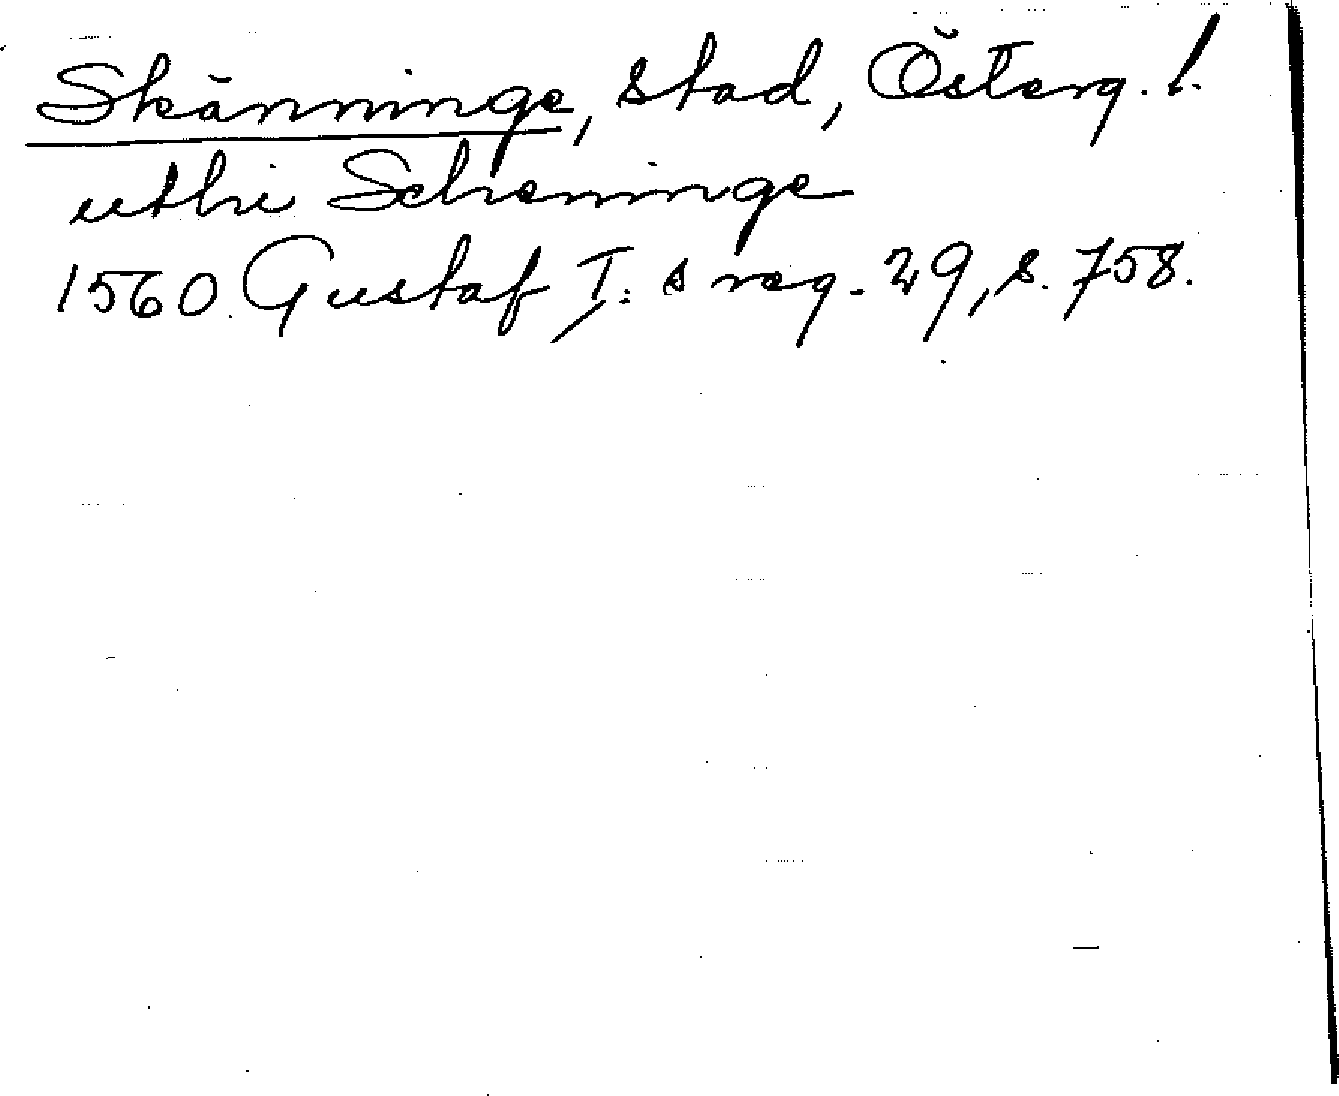 Skänninge, stad, Österg. l.
uthi Scheninge
1560 Gustaf I:s reg. 29, s. 758.